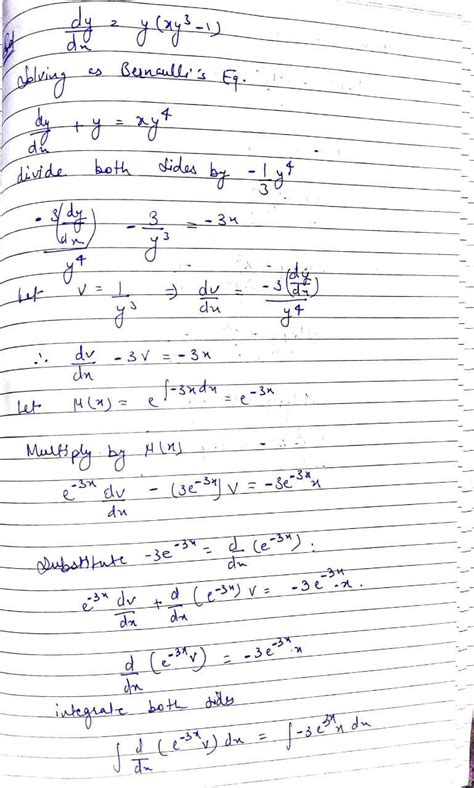 Sol
dy/dx = y(xy³-1)
Solving as Bernaulli's Eq.
dy/dx + y = xy⁴
divide both sides by -1/3 y⁴
-3(dy/dx)/y⁴ - 3/y³ = -3x
Let v = 1/y³ ⇒ dv/dx = -3(dy/dx)/y⁴
∴ dv/dx - 3v = -3x
Let μ(x) = e^∫-3xdx = e^-3x
Multiply by μ(x)
e^-3x dv/dx - (3e^-3x)v = -3e^-3x x
Substitute -3e^-3x = d/dx (e^-3x).
e^-3x dv/dx + d/dx (e^-3x) v = -3e^-3x·x
d/dx (e^-3x v) = -3e^-3x·x
integrate both sides
∫ d/dx (e^-3x v) dx = ∫-3e^3x x dx